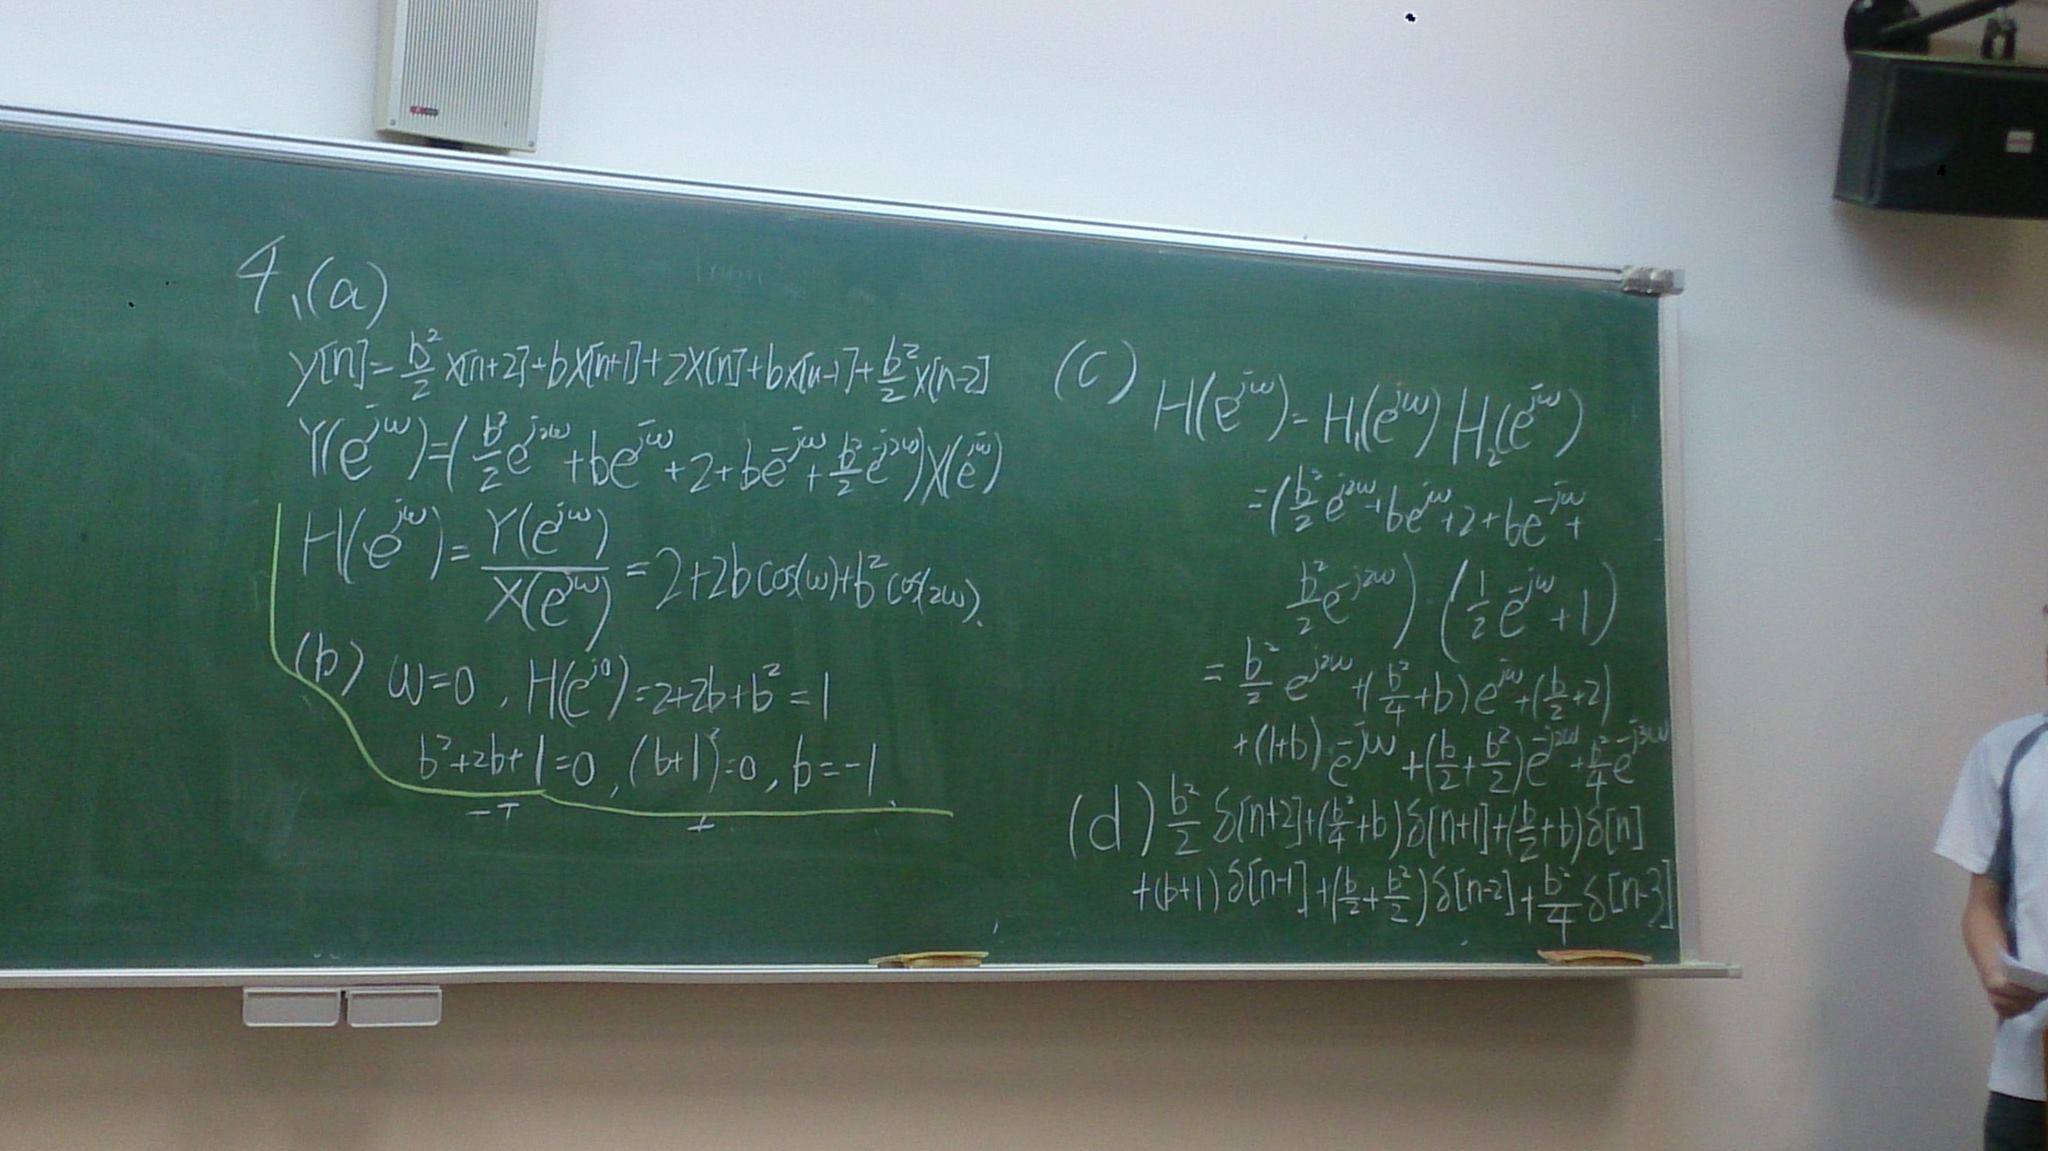 4.(a)
y[n]=b²/2 x[n+2]+bx[n+1]+2x[n]+bx[n-1]+b²/2 x[n-2]
Y(e^jω)=(b²/2 e^j2ω+be^jω+2+be^-jω+b²/2 e^-j2ω)X(e^jω)
H(e^jω)=Y(e^jω)/X(e^jω)=2+2bcos(ω)+b²cos(2ω).
(b) ω=0, H(e^j0)=2+2b+b²=1
b²+2b+1=0, (b+1)²=0, b=-1
(c) H(e^jω)=H₁(e^jω)H₂(e^jω)
=(b²/2 e^j2ω+be^jω+2+be^-jω+
b²/2 e^-j2ω)·(1/2 e^-jω+1)
=b²/2 e^j2ω+(b²/4+b)e^jω+(b/2+2)
+(1+b)e^-jω+(b/2+b²/2)e^-j2ω+b²/4 e^-j3ω
(d) b²/2 δ[n+2]+(b²/4+b)δ[n+1]+(b/2+b)δ[n]
+(b+1)δ[n-1]+(b/2+b²/2)δ[n-2]+b²/4 δ[n-3]